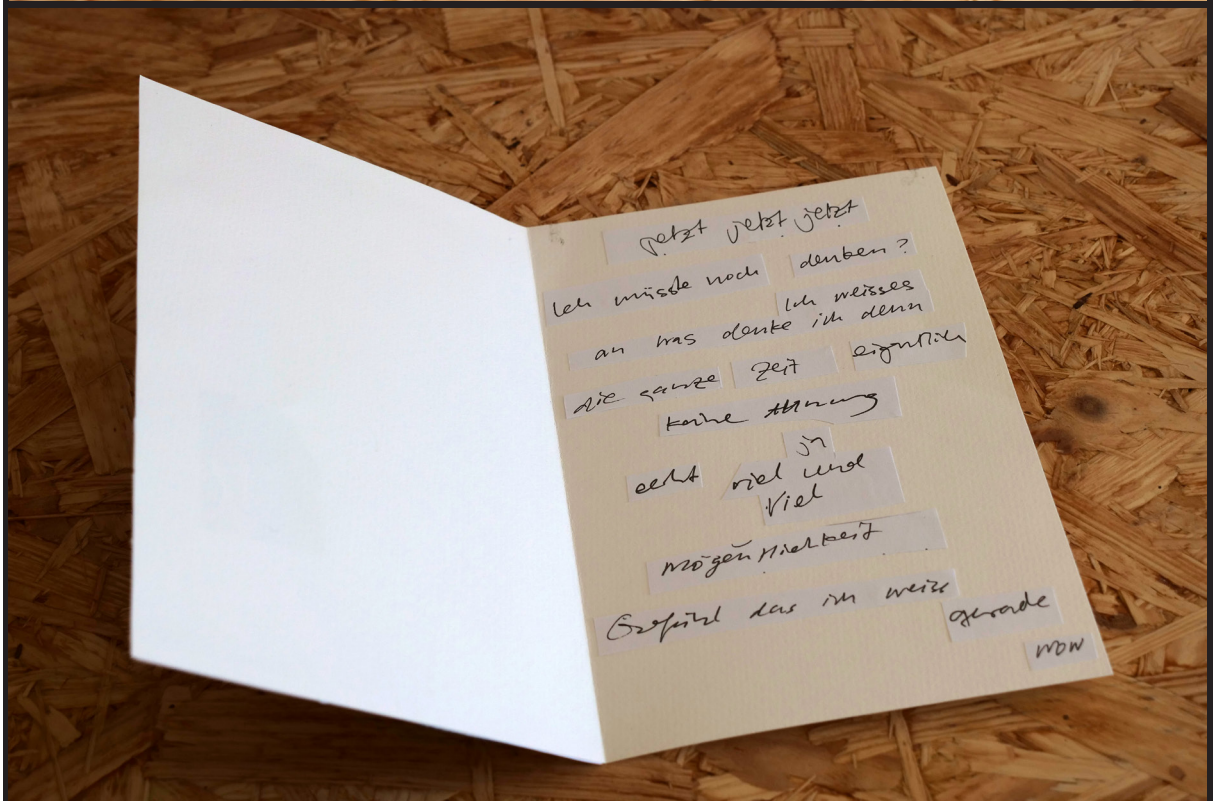 jetzt jetzt jetzt
Ich müsste noch denken?
Ich weisses
an was denke ich denn
die ganze Zeit eigentlich
keine Ahnung
ja
echt viel und
viel
Gefühl das ich weiss gerade
wow